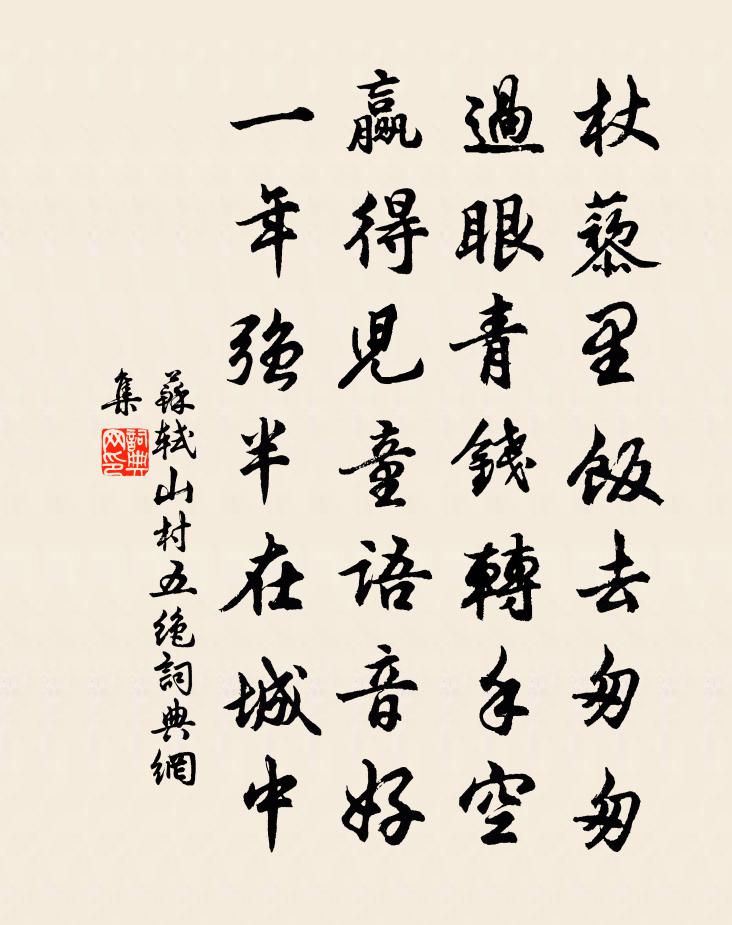 杖藜里飯去匆匆
過眼青錢轉手空
贏得兒童語音好
一年強半在城中
蘇軾山村五絶詞典網
集
詞典网印